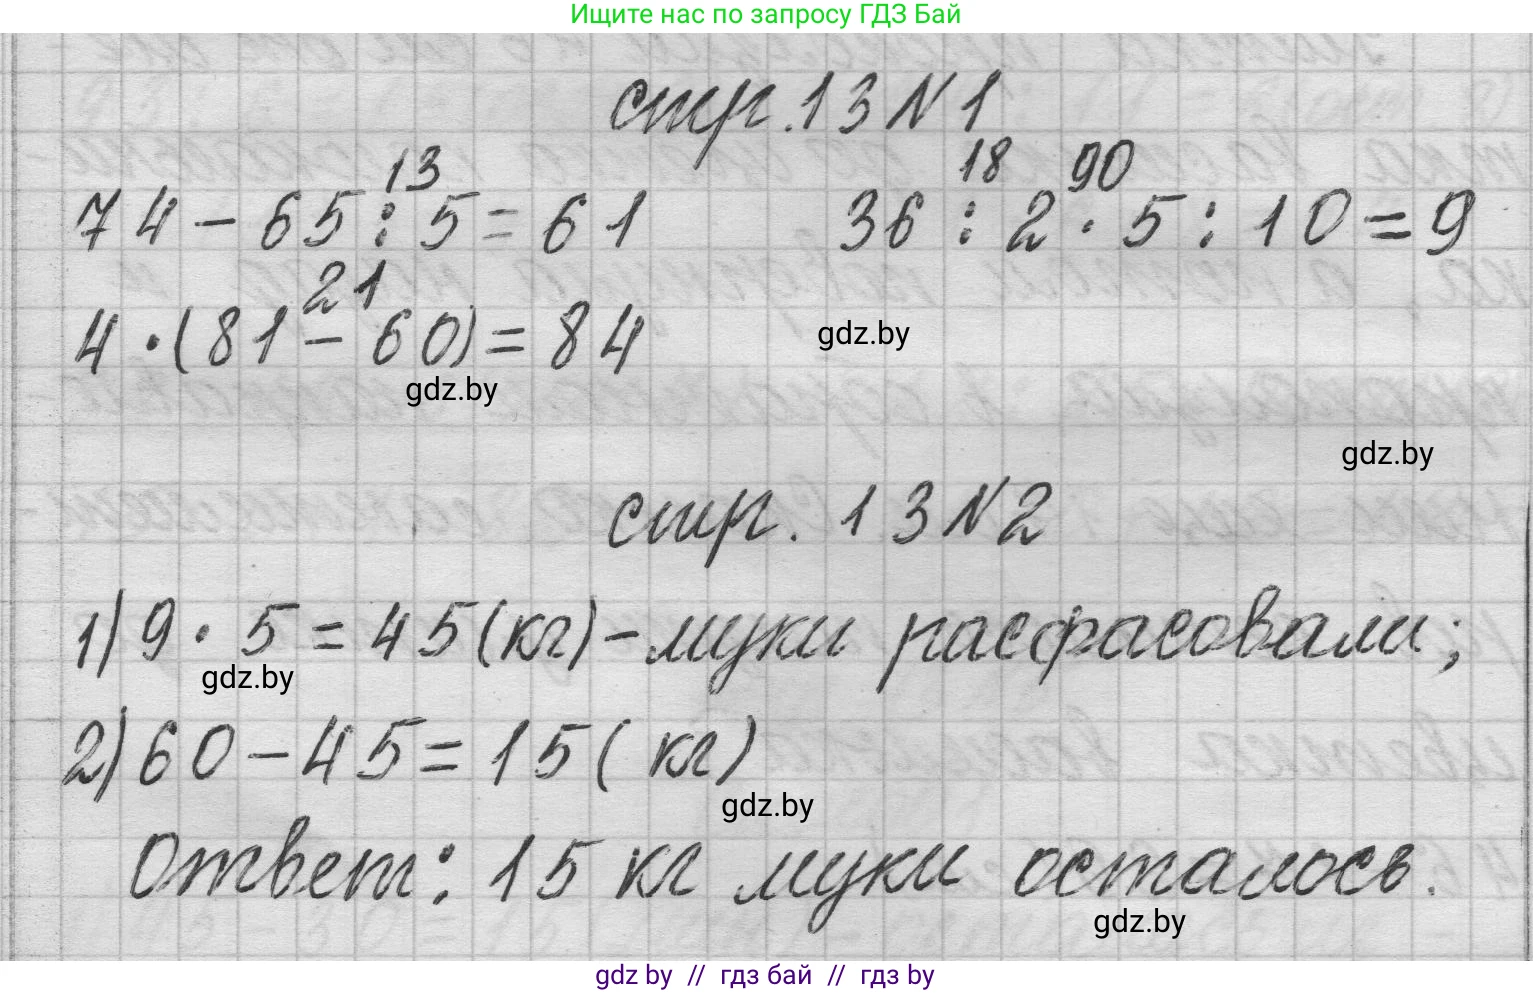 Ищите нас по запросу ГДЗ Бай
стр. 13 N 1
13 18 90
74 - 65 : 5 = 61 36 : 2 · 5 : 10 = 9
21
4 · (81 - 60) = 84
gdz.by
gdz.by
gdz.by
стр. 13 N 2
1) 9 · 5 = 45 (кг) - муки расфасовали;
gdz.by
2) 60 - 45 = 15 (кг)
gdz.by
Ответ: 15 кг муки осталось.
gdz.by
gdz by // гдз бай // гдз by